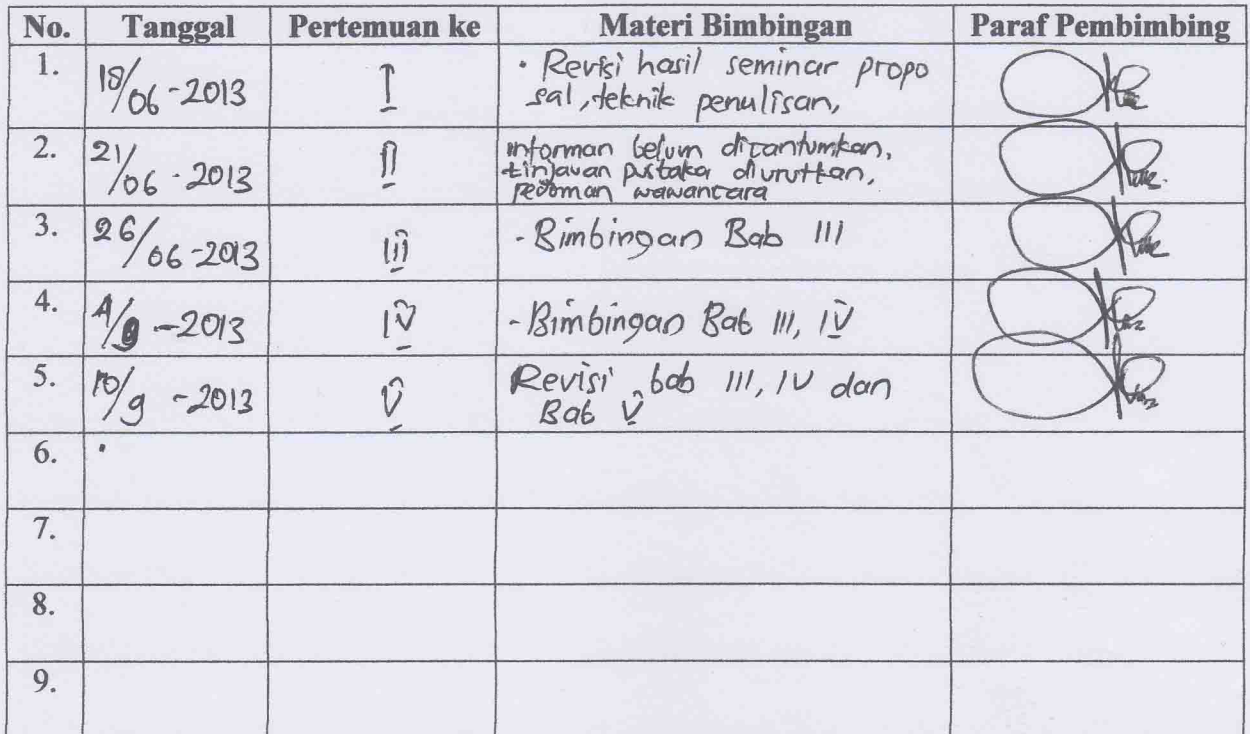 No. Tanggal Pertemuan ke Materi Bimbingan Paraf Pembimbing
1. 18/06-2013 I · Revisi hasil seminar propo
sal, teknik penulisan,
2. 21/06-2013 II informan belum dicantumkan,
tinjauan pustaka diurutkan,
pedoman wawancara
3. 26/06-2013 III - Bimbingan Bab III
4. 4/9-2013 IV - Bimbingan Bab III, IV
5. 10/9-2013 V Revisi bab III, IV dan
Bab V
6.
7.
8.
9.